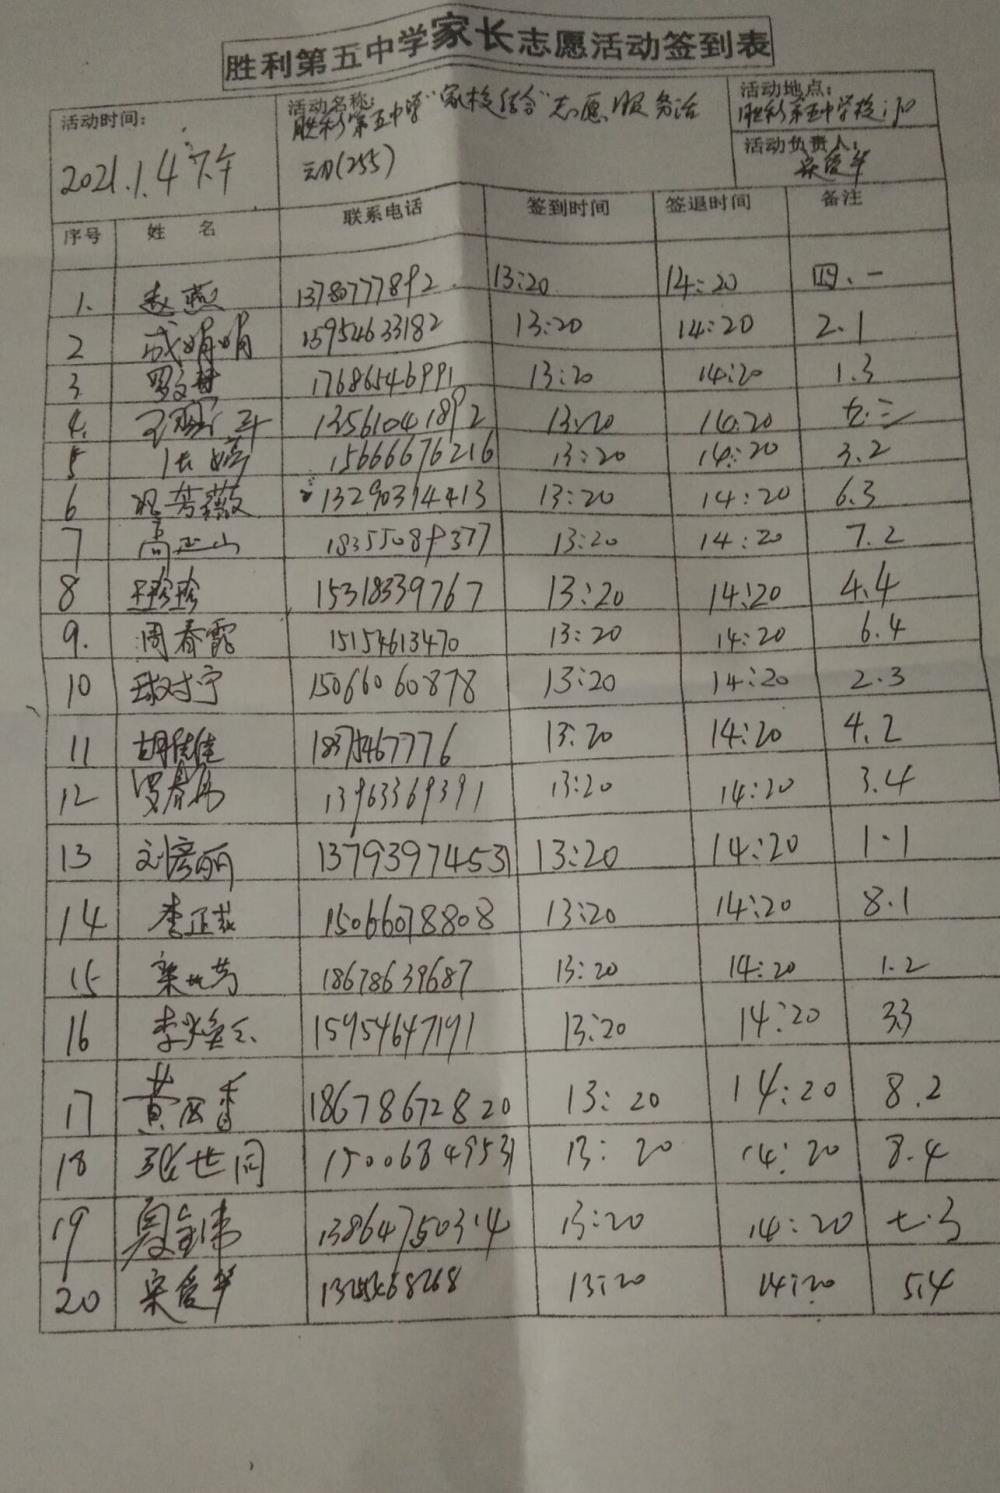 胜利第五中学家长志愿活动签到表
活动时间: 2021.1.4下午
活动名称: 胜利第五中学"家校结合"志愿服务活
动(255)
活动地点: 胜利第五中学校门口
活动负责人: 宋爱华
序号 姓名 联系电话 签到时间 签退时间 备注
1. 赵燕 13780777892 13:20 14:20 四.一
2 成娟娟 15954633182 13:20 14:20 2.1
3 17686546991 13:20 14:20 1.3
4. 13561041892 13:20 14:20 七.三
5 张婷 15666676216 13:20 14:20 3.2
6 13290314413 13:20 14:20 6.3
7 高延山 18355089377 13:20 14:20 7.2
8 王珍珍 15318339767 13:20 14:20 4.4
9. 周春霞 15154613470 13:20 14:20 6.4
10 15066060878 13:20 14:20 2.3
11 胡佳佳 13:20 14:20 4.2
12 13963369391 13:20 14:20 3.4
13 13793974531 13:20 14:20 1.1
14 李正 15066018808 13:20 14:20 8.1
15 18678639687 13:20 14:20 1.2
16 李 15954647191 13:20 14:20 33
17 黄西香 18678672820 13:20 14:20 8.2
18 张世同 15006849531 13:20 14:20 8.4
19 夏金伟 13864750314 13:20 14:20 七.3
20 宋爱华 13:20 14:20 5.4